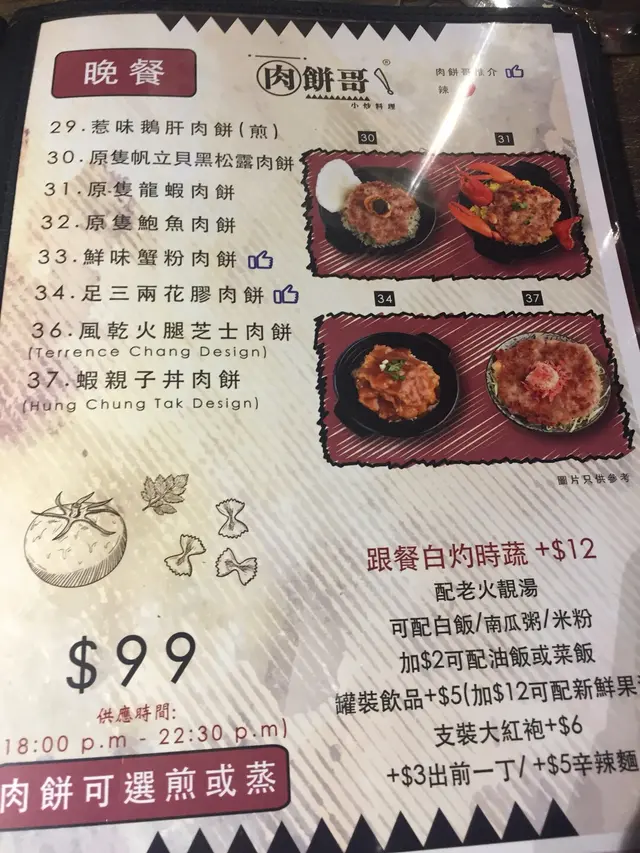 晚餐
肉餅哥®
小炒料理
肉餅哥推介
辣
29.惹味鵝肝肉餅(煎)
30.原隻帆立貝黑松露肉餅
31.原隻龍蝦肉餅
32.原隻鮑魚肉餅
33.鮮味蟹粉肉餅
34.足三兩花膠肉餅
36.風乾火腿芝士肉餅
(Terrence Chang Design)
37.蝦親子丼肉餅
(Hung Chung Tak Design)
30
31
34
37
圖片只供參考
$99
供應時間:
18:00 p.m - 22:30 p.m)
肉餅可選煎或蒸
跟餐白灼時蔬 +$12
配老火靚湯
可配白飯/南瓜粥/米粉
加$2可配油飯或菜飯
罐裝飲品+$5(加$12可配新鮮果
支裝大紅袍+$6
+$3出前一丁/ +$5辛辣麵